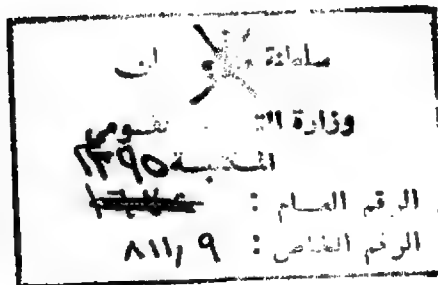 سلطنة ان
وزارة القومي
المكتبة ٢٣٩٥
الرقم العام :
الرقم الخاص : ٨١١,٩